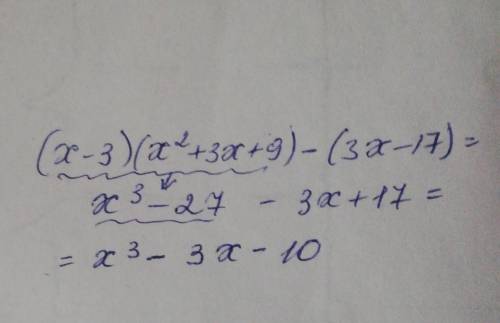 (x-3)(x²+3x+9)-(3x-17)=
x³-27 - 3x+17=
= x³- 3x-10